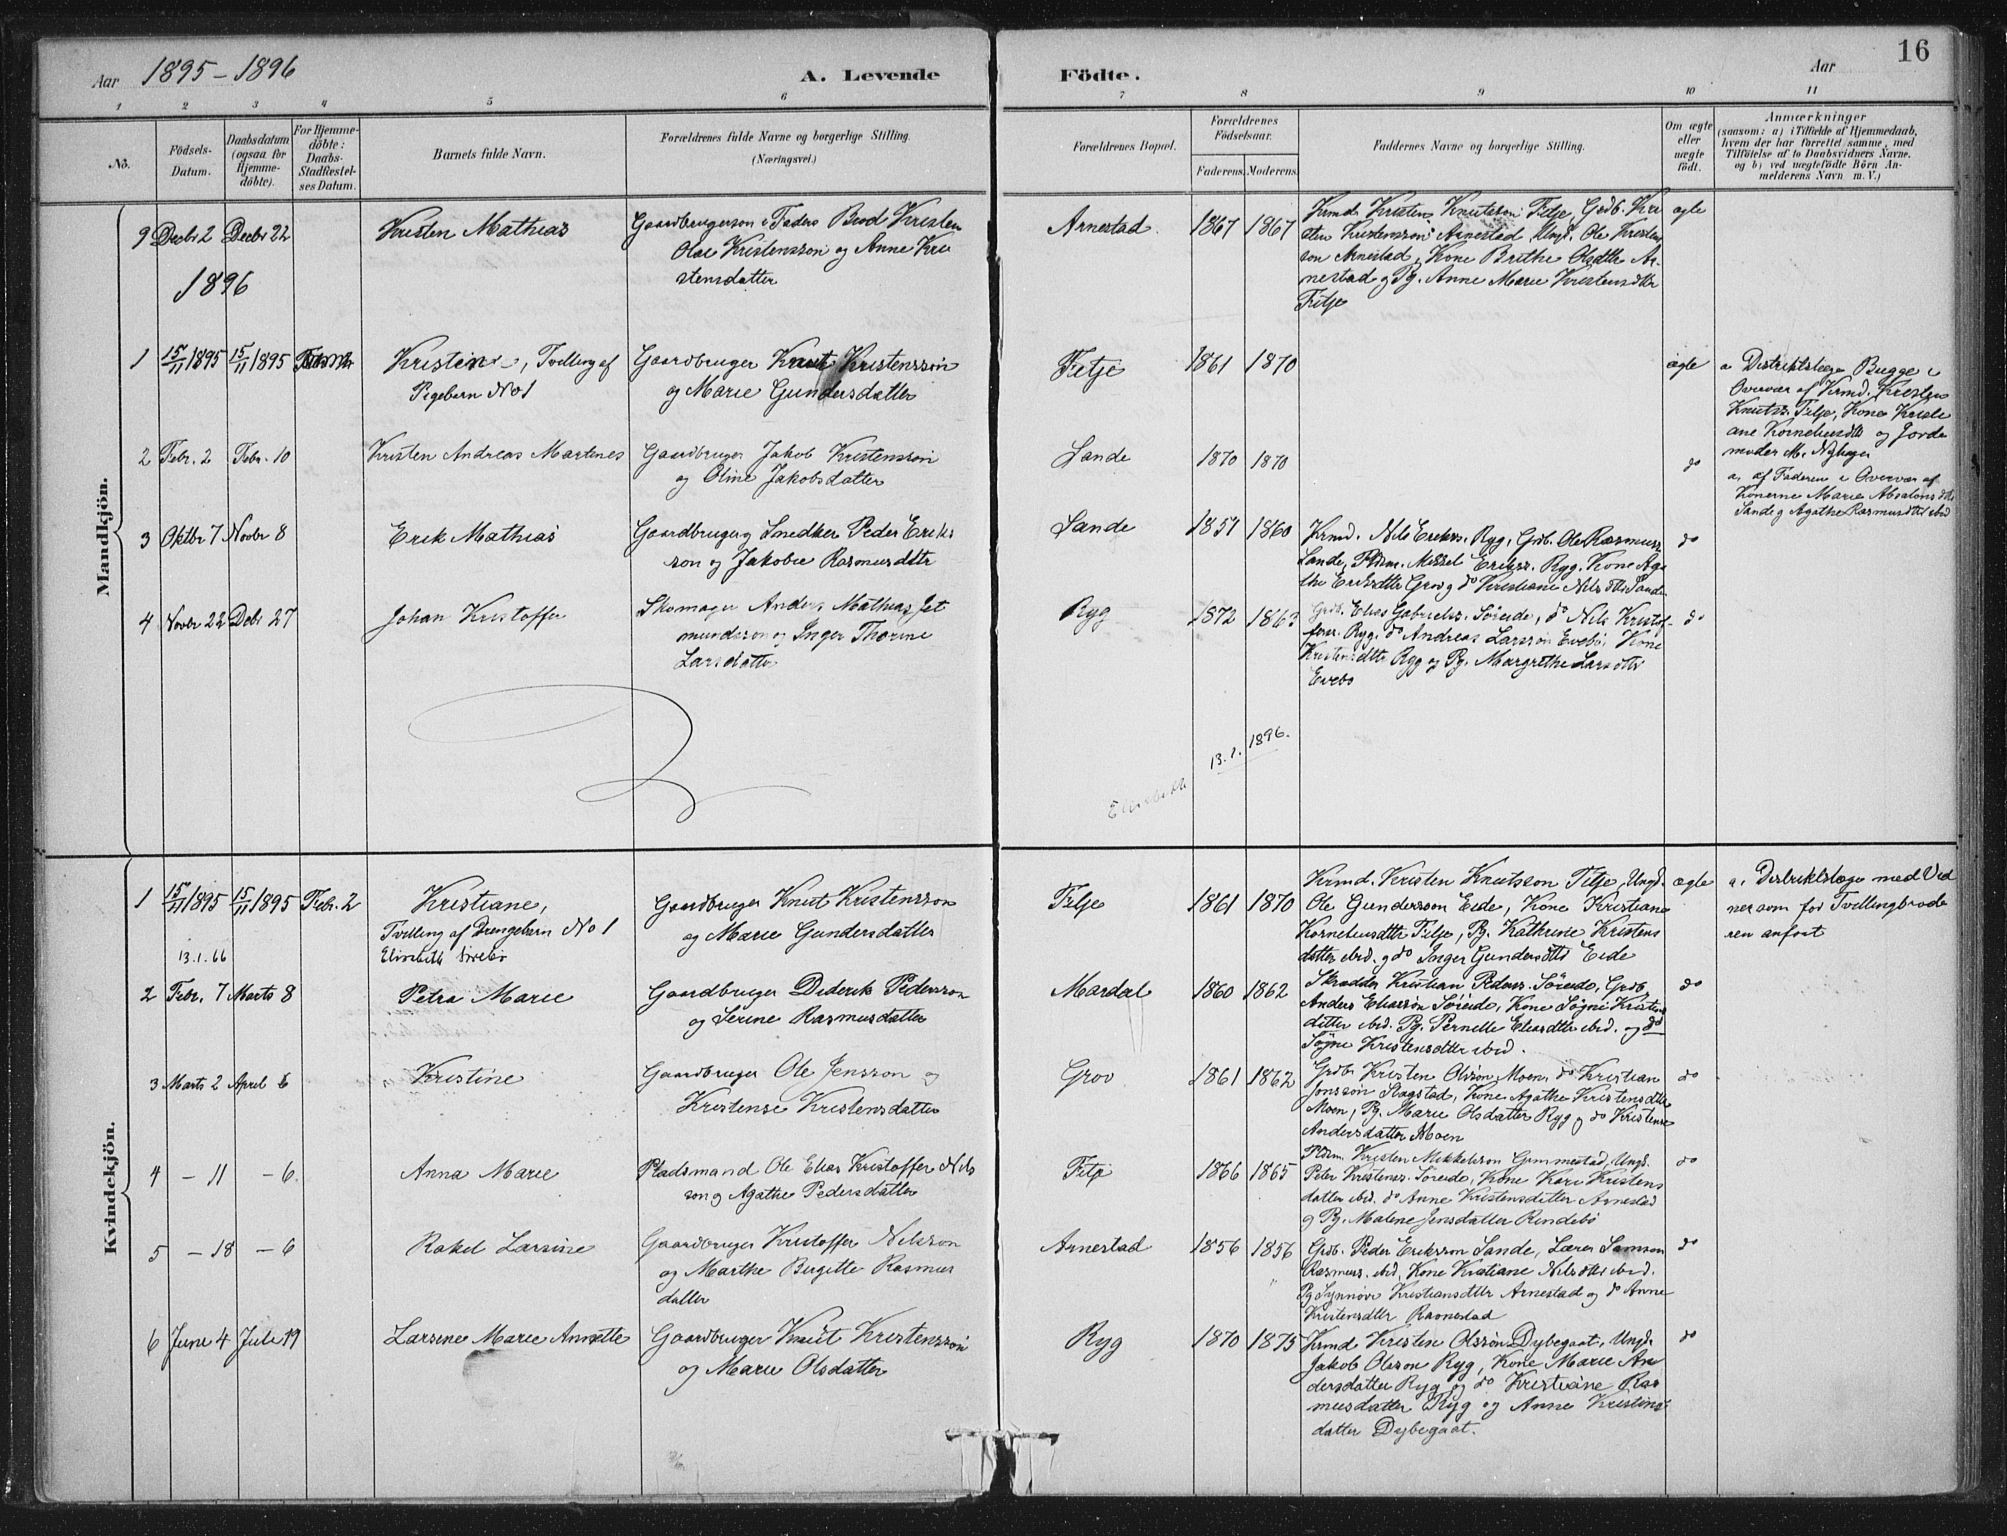 16
Aar 1895-1896
A. Levende Födte.
Aar
1 2 3 4 5 6 7 8 9 10 11
No.
Födsels-Datum.
Daabsdatum (ogsaa for Hjemme-döbte).
For Hjemme-döbte: Daabs-Stadfestel-ses Datum.
Barnets fulde Navn.
Forældrenes fulde Navne og borgerlige Stilling.
(Næringsvei.)
Forældrenes Bopæl.
Forældrenes Födselsaar.
Faderens. Moderens.
Faddernes Navne og borgerlige Stilling.
Om ægte eller uægte födt.
Anmærkninger
(saasom: a) i Tilfælde af Hjemmedaab, hvem der har forrettet samme, med Tilföielse af to Daabsvidners Navne, og b) ved uægtefödte Börn An-melderens Navn m. V.)
Mandkjön.
9 Decbr 2 Decbr 22 Kristen Mathias
Gaardbrugerson i Faders Brod Kristen
Olai Kristensson og Anne Kri
stensdatter
Arnestad. 1867 1867
Krmd. Kristen Knutsson Fitje, Grdb. Kri
sten Kristensson Arnestad, Ungk. Ole Kristen
son Arnestad, Kone Brithe Olsdtr Ar-
nestad og Pg. Anne Marie Kristensdtr
Fitje
ægte
1896
1 15/11 1895 15/11 1895
Kristen, Tvilling af
Pigebarn No 1
Gaardbruger Knut Kristensson
og Marie Gundersdatter
Fitje 1861 1870
ægte
a Distriktslæge Bugge i
Overvær af Krmd. Kristen
Knutss. Fitje, Kone Kristi
ane Korneliusdtr og Jorde
moder M. Nyhage
2 Febr. 2 Febr. 10 Kristen Andreas Martines
Gaardbruger Jakob Kristensson
og Oline Jakobsdatter
Sande 1870 1870
do
a, af Faderen i Overvær af
Konerne Marie Absalonsdtr
Sande og Agathe Rasmusdtr ibid
3 Oktbr 7 Novbr 8 Erik Mathias
Gaardbruger og Smedker Peder Eriks
son og Jakobie Rasmusdtr
Sande 1857 1860
Krmd. Nils Erikss. Ryg, Grdb. Ole Rasmuss
Sande, Pldsm. Mikkel Erikss. Ryg, Kone Aga
the Eriksdtr Grov og do Kristiane Nilsdtr Sande
do
4 Novbr 22 Debr 27 Johan Kristoffer
Skomager Anders Mathias Jet
mundsson og Inger Thorine
Larsdatter
Ryg 1872 1863
Grdb. Elias Gabrielss. Söreide, do Nils Kristof-
fers. Ryg, do Andreas Larsson Evebö, Kone
Kristensdtr Ryg og Pg. Margrethe Larsdtr
Evebö
do
Elisabeth 13.1.1896.
Kvindekjön.
1 15/11 1895 15/11 1895 Febr. 2
Kristiane,
Tvilling af Drengebarn No 1
13.1.66
Elisabeth
Gaardbruger Knut Kristensson
og Marie Gundersdatter
Fitje 1861 1870
Krmd. Kristen Knutsson Fitje, Ungk.
Ole Gundersson Eide, Kone Kristiane
Korneliusdtr Fitje, Pg. Kathrine Kristens
datter ibid. og do Inger Gundersdtr Eide
ægte
a. Distriktslæge med Vid
ner som for Tvillingbrode
ren anfört
2 Febr. 7 Marts 8 Petra Marie
Gaardbruger Diderik Pedersson
og Serine Rasmusdatter
Mardal 1860 1862
Skrædder Kristian Pederss. Söreide, Grdb.
Anders Eliassön Söreide, Kone Sögni Kristens
datter ibid. Pg. Pernille Eliasdtr ibid. og do
Sögne Kristensdtr ibid.
do
3 Marts 2 April 6 Kristine
Gaardbruger Ole Jensson og
Kristense Kristensdatter
Grov 1861 1862
Grdb. Kristen Olsson Moen, do Kristian
Jonsson Rygstad, Kone Agathe Kristensdtr
Moen, Pg. Marie Olsdatter Ryg og do Kristense
Andersdatter Moen
do
4 - 11 - 6. Anna Marie
Pladsmand Ole Elias Kristoffer Nils
son og Agathe Pedersdatter
Fitje 1866 1865
Pldsm. Kristen Mikkelsson Gimmestad, Ungk.
Peter Kristenss. Söreide, Kone Kari Kristens
datter ibid. do Anne Kristensdatter Arnestad
og Pg. Malene Jensdatter Rindebö
do
5 - 18 - 6 Rakel Larsine
Gaardbruger Kristoffer Nilsson
og Marthe Birgitte Rasmus
datter
Arnestad 1856 1856
Grdb. Peder Eriksson Sande, Lærer Samson
Rasmuss. ibid, Kone Kristiane Nilsdtr ibid.
Pg Synnöve Kristiansdtr Arnestad og do Anne
Kristensdtr Ravnestad
do
6 June 4 Jule 19 Larsine Marie Annette
Gaardbruger Knut Kristensson
og Marie Olsdatter
Ryg 1870 1875
Krmd Kristen Olsson Dybegaat, Ungk.
Jakob Olsson Ryg, Kone Marie An
dersdatter Ryg og do Kristiane Ras
musdatter Ryg og Anne Kristine
datter Dybegaat.
do